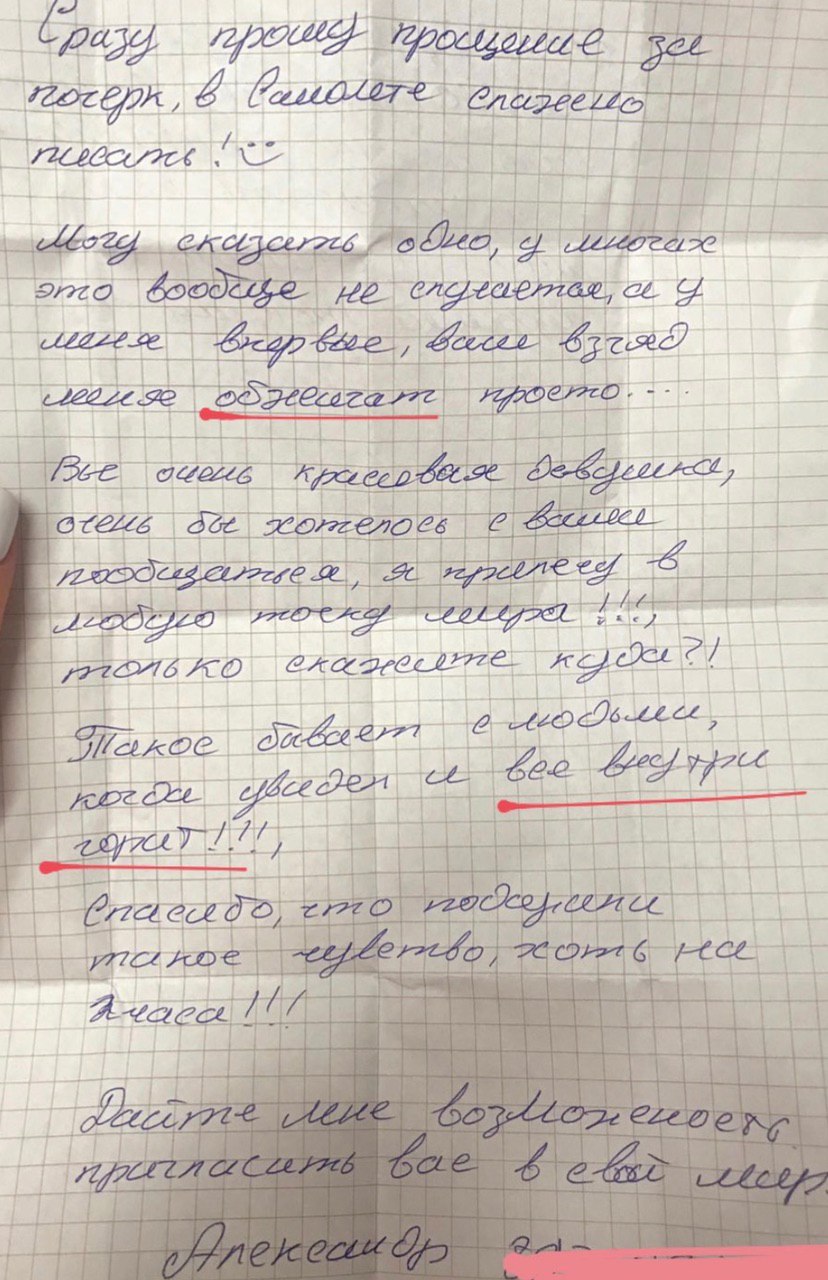 Сразу прошу прощение за
почерк, в Самолете сложено
писать!
Могу сказать одно, у многих
это вообще не случается, а у
меня впервые, ваш взгляд
меня обжигат просто....
Вы очень красивая девушка,
очень бы хотелось с вами
пообщаться, я прилечу в
любую точку мира!!!,
только скажите куда?!
Такое бывает с людьми,
когда увидел и все внутри
горит!!!,
Спасибо, что подарили
такое чувство, хоть на
2 часа!!!
Дайте мне возможность
пригласить вас в свой мир
Александр